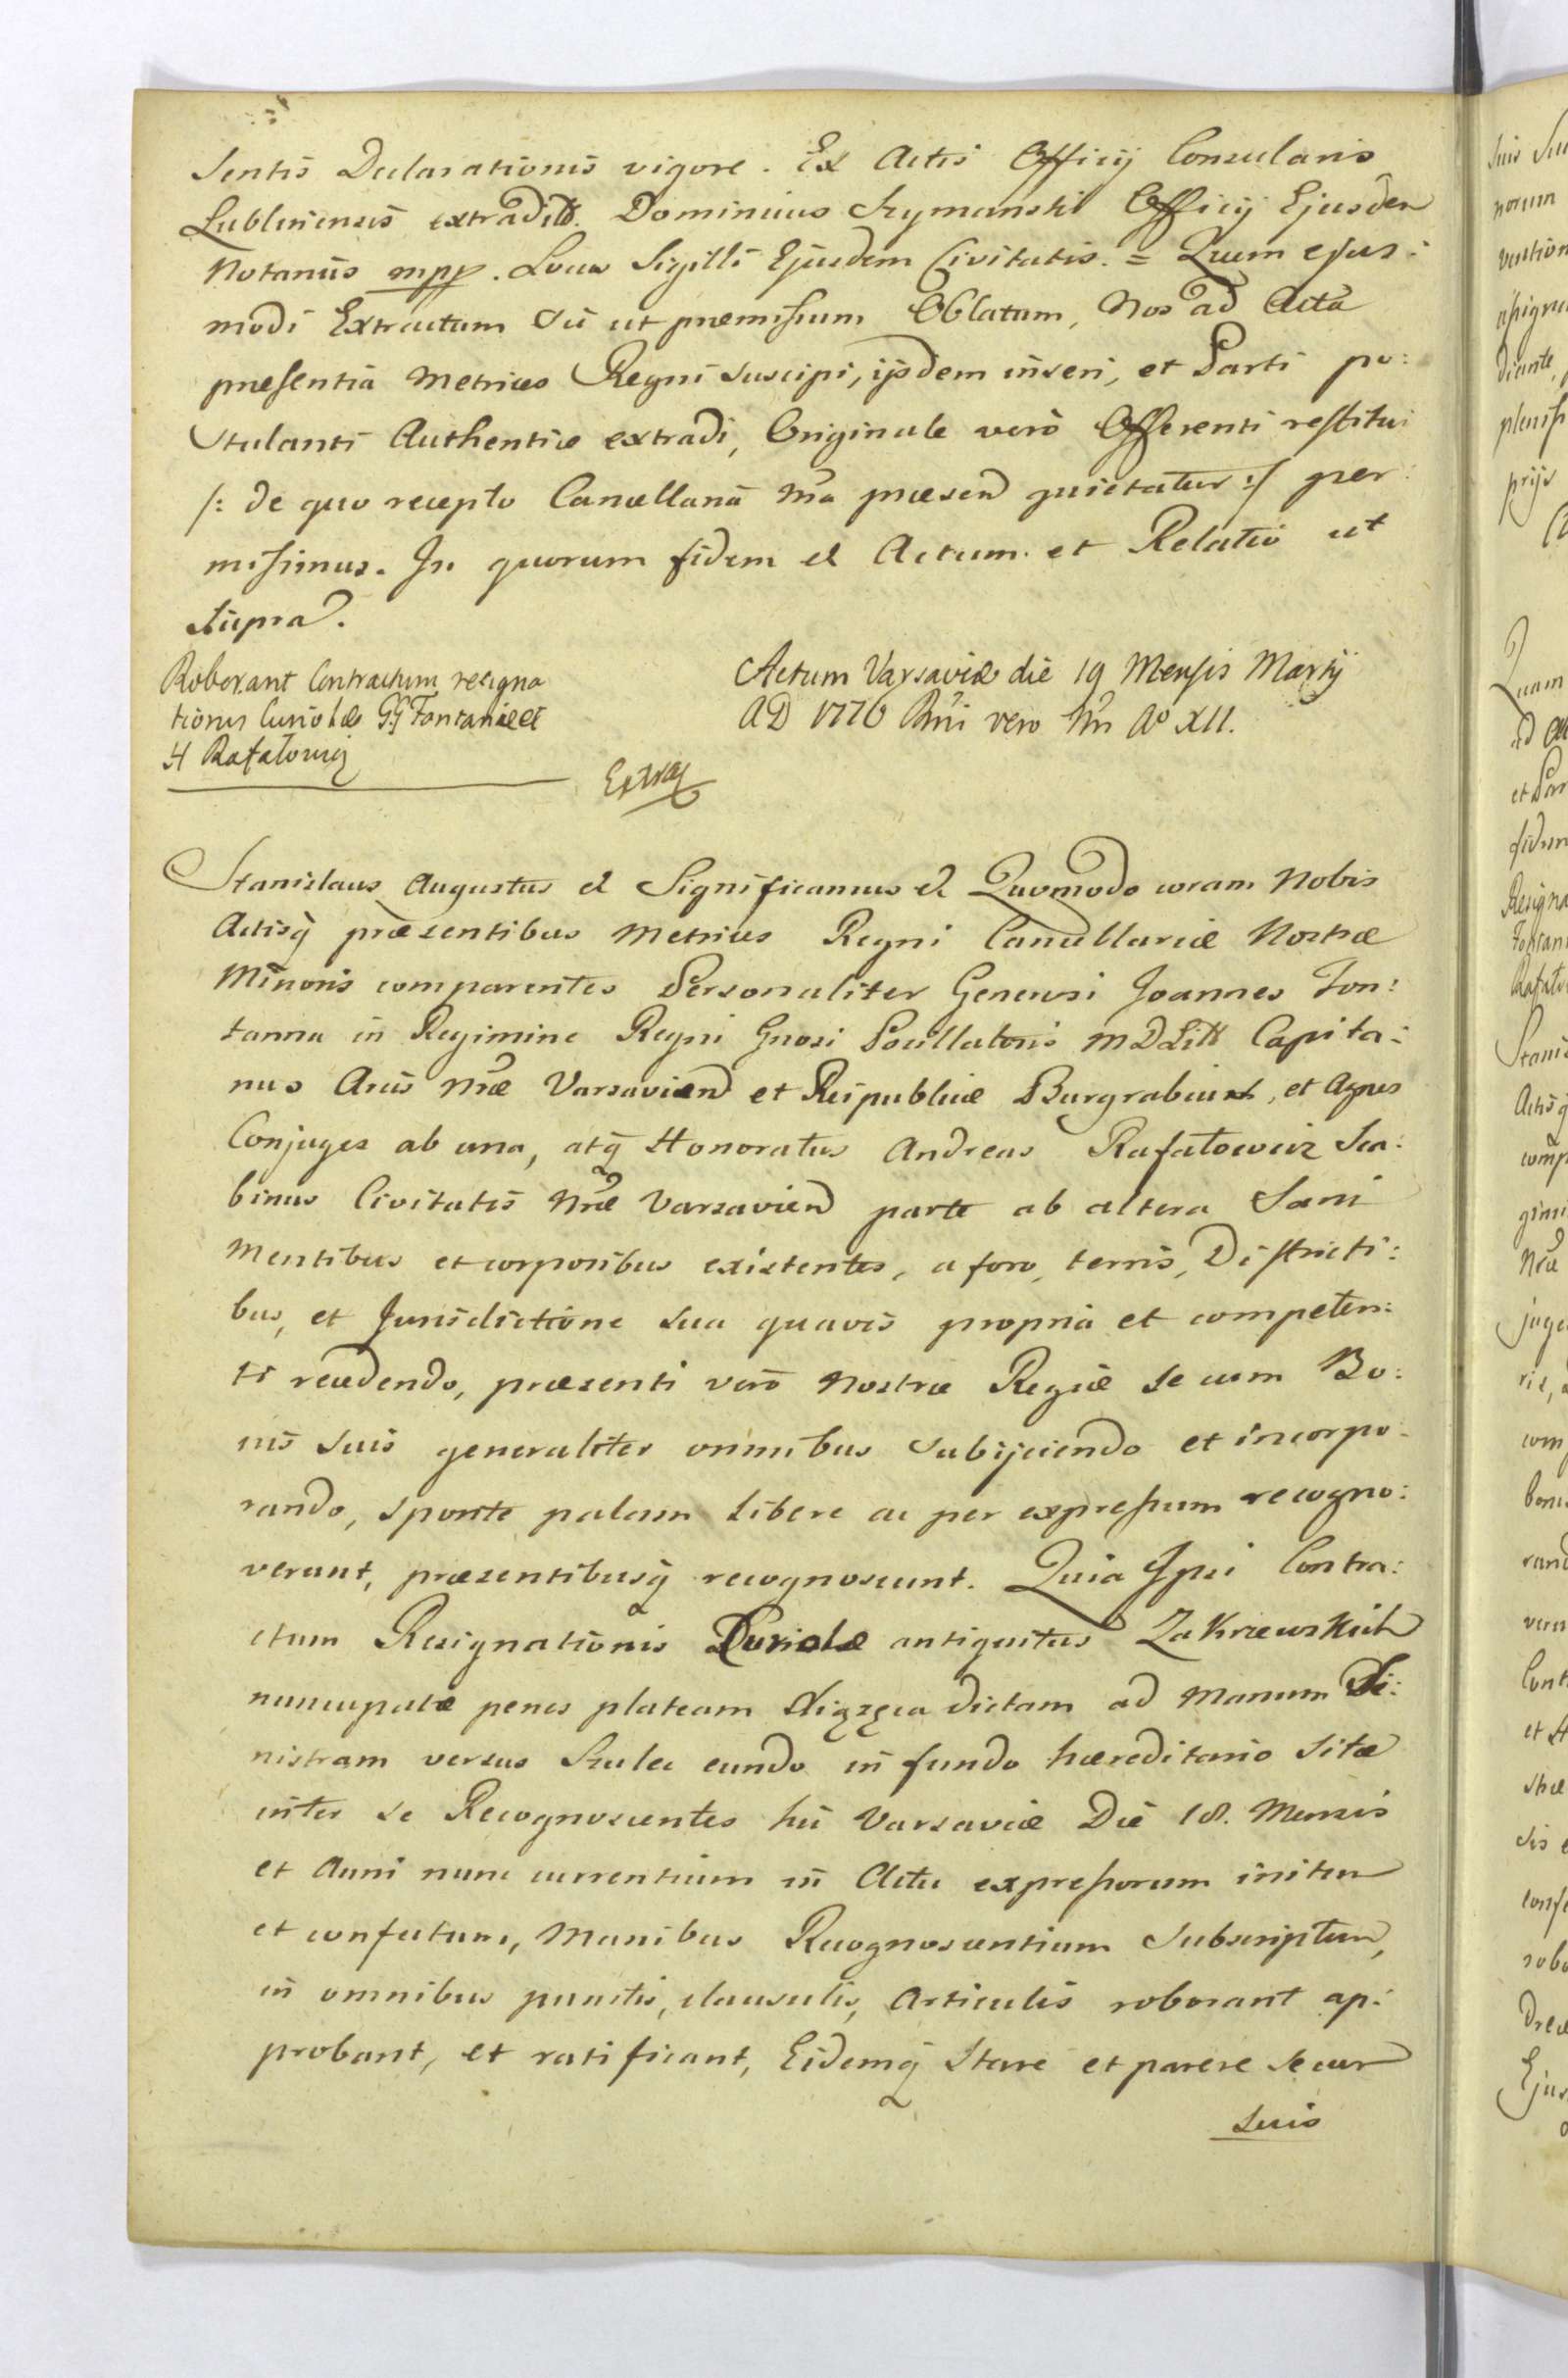 sentis Declarationis vigore. Ex Actis Officij Consularis
Lublinensis extradit. Dominicus Szymanski Officij Ejusdem
Notarius mpp. Locus Sigilli Ejusdem Civitatis. = Quem ejus:
modi Extractum sic ut præmissum Oblatum, Nos ad Acta
præsentia Metrices Regni suscipi, ijsdem inseri, et Parti po:
stulanti Authentice extradi, Originale verò Offerenti restitui
/: de quo recepto Cancellaria nra præsen quietatur :/ per:
misimus. In quorum fidem et Actum et Relatio ut
supra.
Roborant Contractum resigna
tionis Curiolæ GG Fontanæ et
H Rafałowicz
Actum Varsaviæ die 19 Mensis Martij
AD 1776 Rni vero Nri Aº XII.
Extrax
Stanislaus Augustus et Significamus et Quomodo coram Nobis
Actisq præsentibus Metrices Regni Cancellariæ Nostræ
Minoris comparentes Personaliter Generosi Joannes Fon:
tanna in Regimine Regni Gnosi Pocillatoris MDLitt Capita:
nus Arcis Nræ Varsavien et Reipublicæ Burgrabius, et Agnes
Conjuges ab una, atq Honoratus Andreas Rafałowicz Sca:
binus Civitatis Nræ Varsavien parte ab altera Sani
Mentibus et corporibus existentes, a foro, terris, Districti:
bus, et Jurisdictione sua quavis propria et competen:
ti recedendo, præsenti verò Nostræ Regiæ se cum Bo:
nis suis generaliter omnibus subijciendo et incorpo:
rando, sponte palam libere ac per expressum recogno:
verunt, præsentibusq recognoscunt. Quia Ipsi Contra:
ctum Resignationis Curiolæ antiquitus Zakrzewskich
nuncupatæ penes plateam Xiązęca dictam ad Manum Si:
nistram versus Szulec eundo in fundo hæreditario sitæ
inter se Recognoscentes hic Varsaviæ Die 18. Mensis
et Anni nunc currentium in Actu expressorum initum
et confectum, Manibus Recognoscentium Subscriptum,
in omnibus punctis, clausulis, Articulis roborant ap:
probant, et ratificant, Eidemq stare et parere se cum
suis